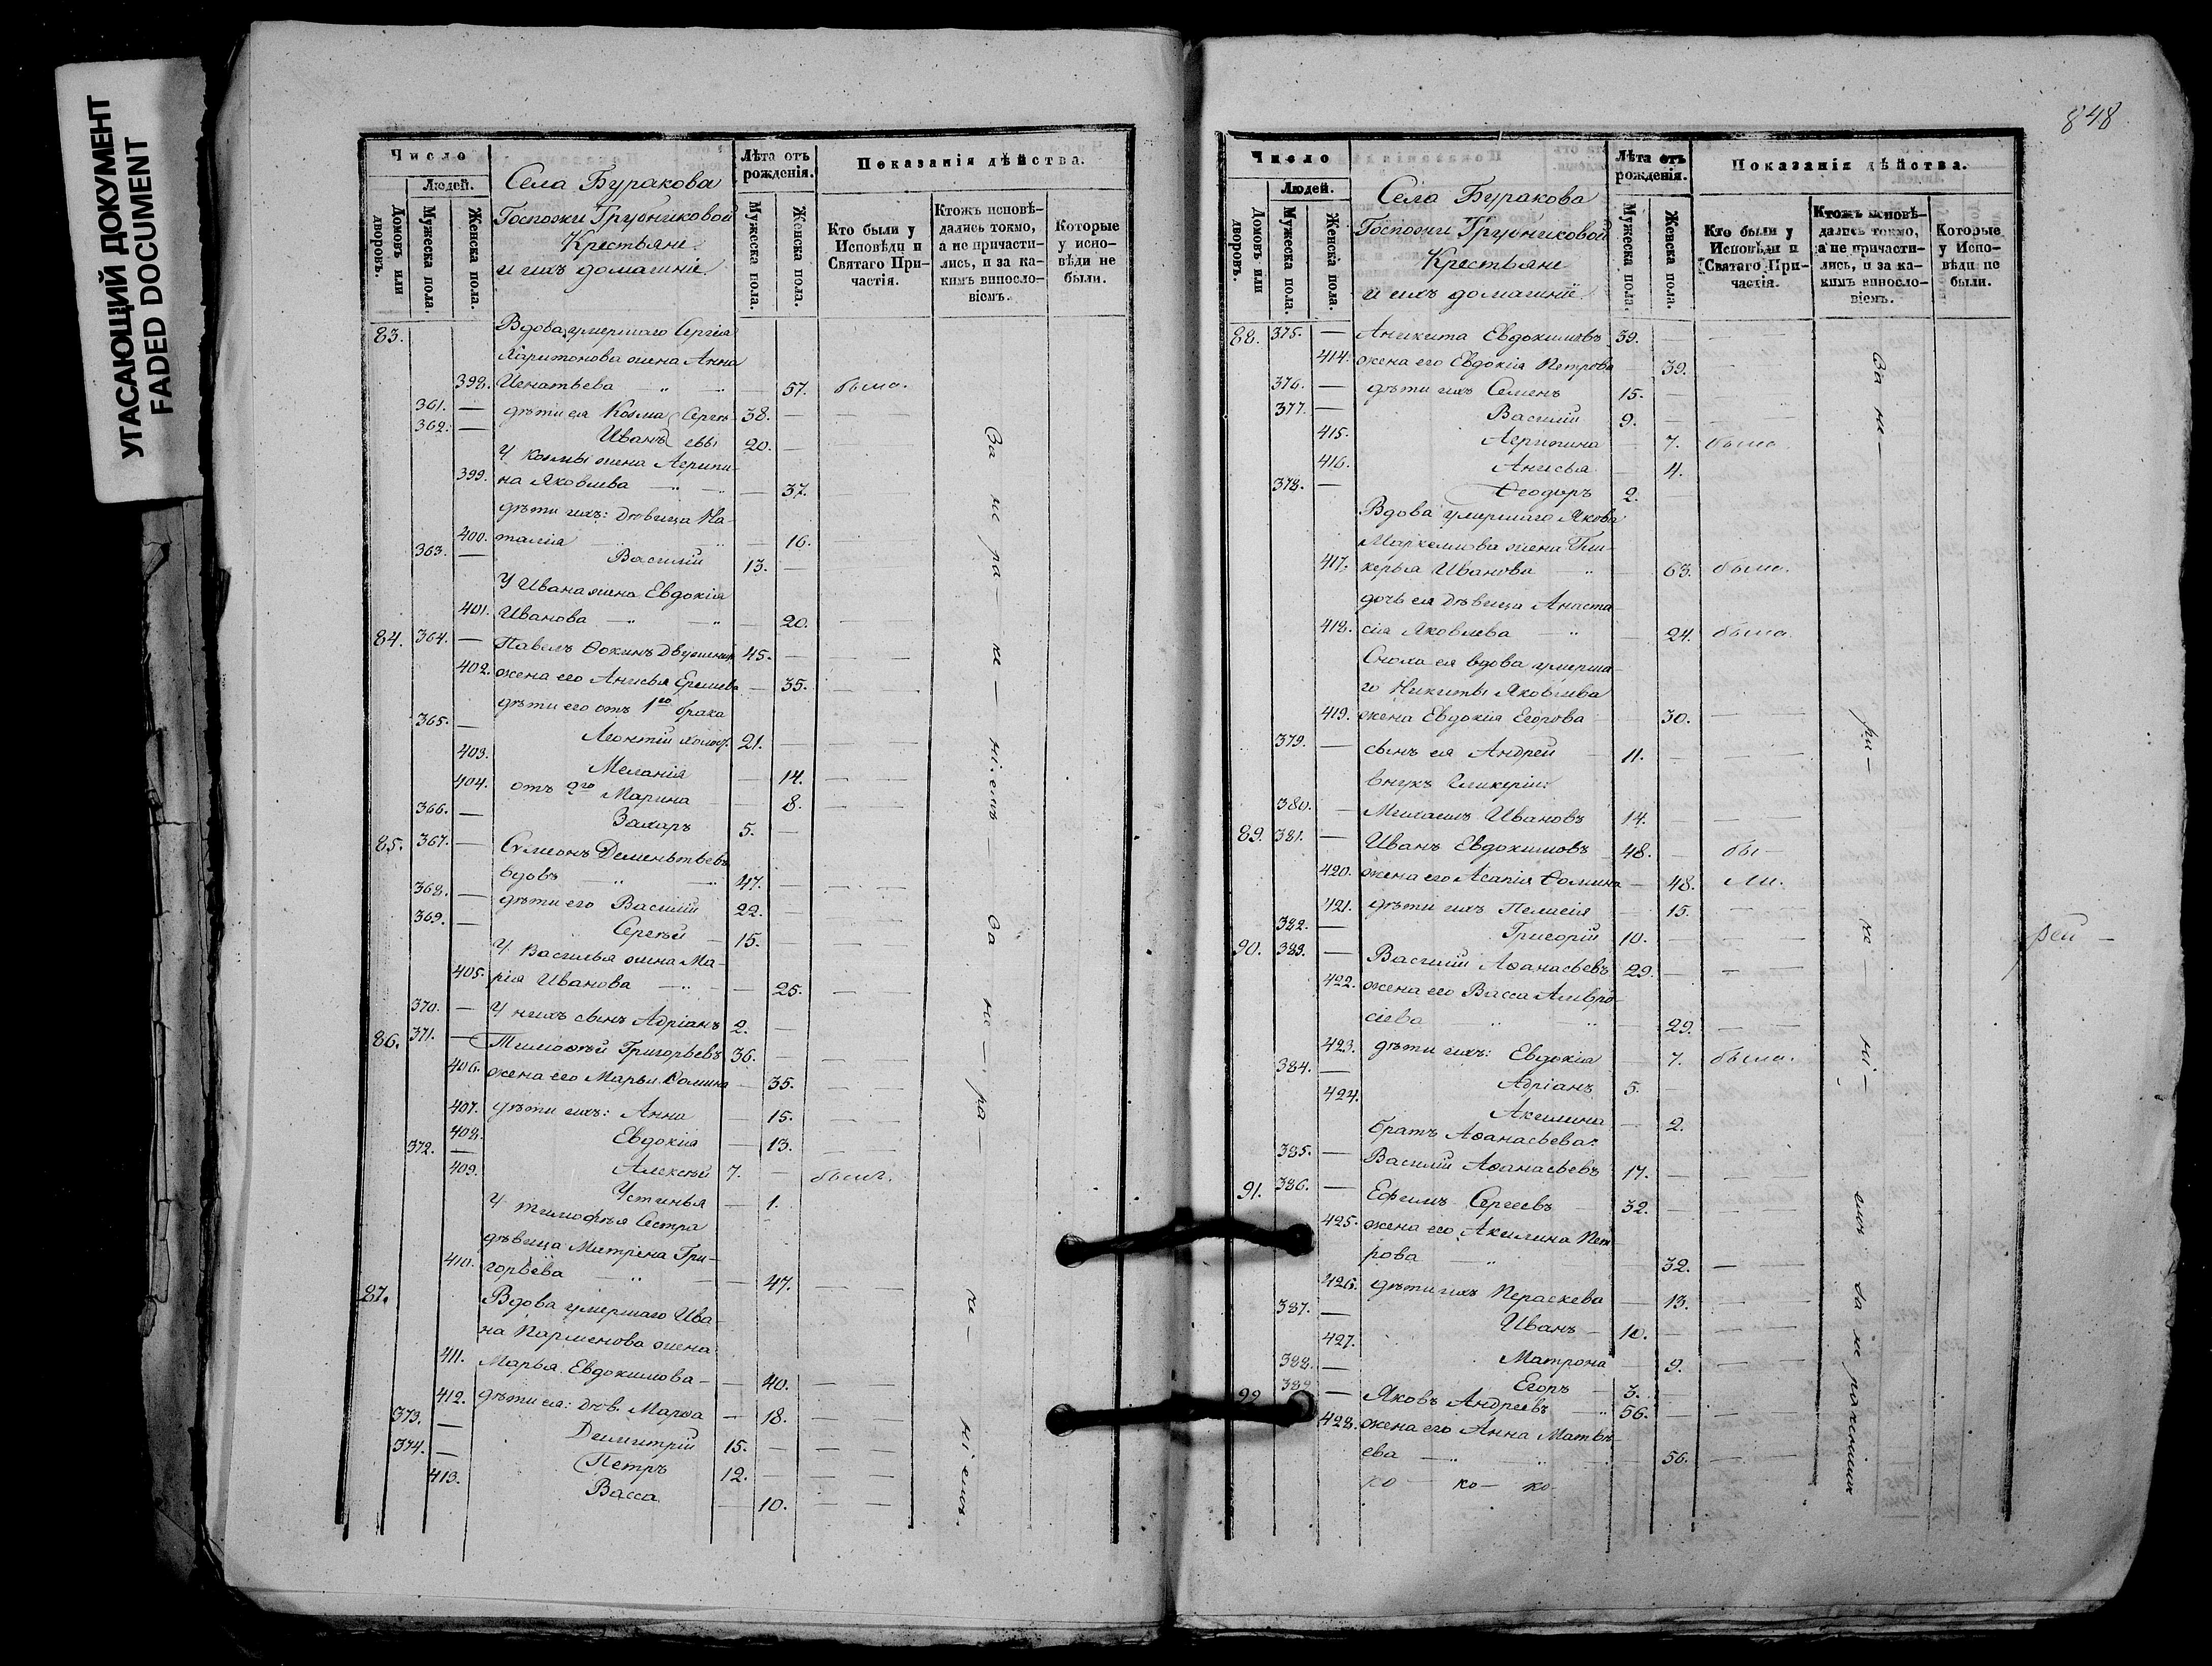 УГАСАЮЩИЙ ДОКУМЕНТ
FADED DOCUMENT
Число
Людей.
Домовъ или дворовъ.
Мужеска пола.
Женска пола.
Села Буракова
Госпожи Трубниковой
Крестьяне
и ихъ домашніе.
Лѣта отъ рожденія.
Мужеска пола.
Женска пола.
Показанія дѣйства.
Кто были у Исповѣди и Святаго Причастія.
Ктожъ исповѣдались токмо, а не причастились, и за какимъ винословіемъ.
Которые у исповѣди не были.
83. Вдова умершаго Сергія
Харитонова жена Анна
398. Игнатьева — „ — 57. была.
361. — дѣти ея Козма Сергѣ- 38. —
362. — Иванъ евы 20. —
У Козмы жена Агрипи-
399. на Яковлева — „ — 37. —
дѣти ихъ: дѣвица На-
400. талія — 16. —
363. — Василій 13. —
У Ивана жена Евдокія
401. Иванова — „ — 20. —
84. 364. — Павелъ Ѳокинъ двуженъ 45. —
402. жена его Анисья Ермиева — 35. —
дѣти его отъ 1го брака
365. — Леонтій холос. 21. —
403. Меланія — 14. —
404. отъ 2го Марина — 8. —
366. — Захаръ 5. —
85. 367. — Сумеонъ Дементьевъ
вдовъ — „ — 47. —
368. — дѣти его Василій 22. —
369. — Сергѣй 15. —
У Василья жена Ма-
405. рія Иванова — „ — 25. —
370. — У нихъ сынъ Адріанъ 2. —
86. 371. — Тимоѳей Григорьевъ 36. —
406. жена его Марья Ѳомина — 35. —
407. дѣти ихъ: Анна — 15. —
408. Евдокія — 13. —
372. — Алексѣй 7. — былъ.
409. Устинья — 1.
У Тимофѣя сестра
дѣвица Матрена Гри-
410. горьева — „ — 47. —
87. Вдова умершаго Ива-
на Парменова жена
411. Марья Евдокимова — 40. —
412. дѣти ея: дѣв. Марѳа — 18. —
373. — Димитрій 15. —
374. — Петръ 12. —
413. Васса — 10. —
За не ра — же — ні.емъ — За не — ра — же — ніемъ.
848
Число
Людей.
Домовъ или дворовъ.
Мужеска пола.
Женска пола.
Села Буракова
Госпожи Трубниковой
Крестьяне
и ихъ домашніе.
Лѣта отъ рожденія.
Мужеска пола.
Женска пола.
Показанія дѣйства.
Кто были у Исповѣди и Святаго Причастія.
Ктожъ исповѣдались токмо, а не причастились, и за какимъ винословіемъ.
Которые у Исповѣди не были.
88. 375. — Аникита Евдокимовъ 39. —
414. жена его Евдокія Петрова — 39. —
376. — дѣти ихъ Семенъ 15. —
377. — Василій 9. —
415. Агрипина — 7. была
416. Анисья — 4.
378. — Ѳеодоръ 2. —
Вдова умершаго Якова
Маркеллова жена Гли-
417. керья Иванова — „ — 63. была.
дочь ея дѣвица Анаста-
418. сія Яковлева — „ — 24. была.
Сноха ея вдова умерша-
го Никиты Яковлева
419. жена Евдокія Егорова 30. —
379. — сынъ ея Андрей 11. —
внукъ Гликеріи:
380. — Михаилъ Ивановъ 14. —
89. 381. — Иванъ Евдокимовъ 48. — бы-
420. жена его Агапія Ѳомина — 48. ли.
421. дѣти ихъ Пелагія 15. —
382. — Григорій 10. —
90. 383. — Василій Аѳанасьевъ 29. —
422. жена его Васса Амвро-
сіева — „ — 29. —
423. дѣти ихъ: Евдокія — 7. была.
384. — Адріанъ 5.
424. Акилина — 2.
братъ Аѳанасьева:
385. — Василій Аѳанасьевъ 17. —
91. 386. — Ефимъ Сергеевъ 32. —
425. жена его Акилина Пет-
рова — „ 32. —
426. дѣти ихъ Параскева — 13. —
387. — Иванъ — 10. —
427. Матрона 9. —
388. — Егоръ — 3. —
92 389 — Яковъ Андреевъ — 56. —
428. жена его Анна Матвѣ-
ева — „ 56. —
ко — ко — ко
За не — ра — же — ні — емъ За не раженіемъ